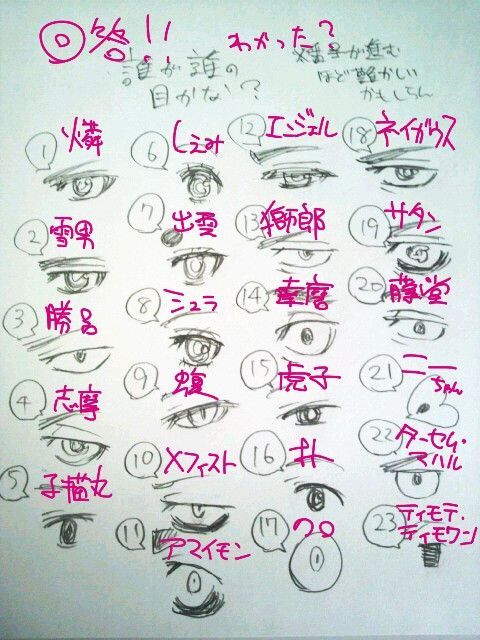 回答!! わかった?
誰が誰の
目かな?
※番号が進む
ほど難しい
かもしらん
1 燐
2 雪男
3 勝呂
4 志摩
5 子猫丸
6 しえみ
7 出雲
8 シュラ
9 蝮
10 メフィスト
11 アマイモン
12 エンジェル
13 獅郎
14 達磨
15 虎子
16 朴
17 クロ
18 ネイガウス
19 サタン
20 藤堂
21 ニーちゃん
22 ターセル・スハル
23 ティモテ・ティモワン